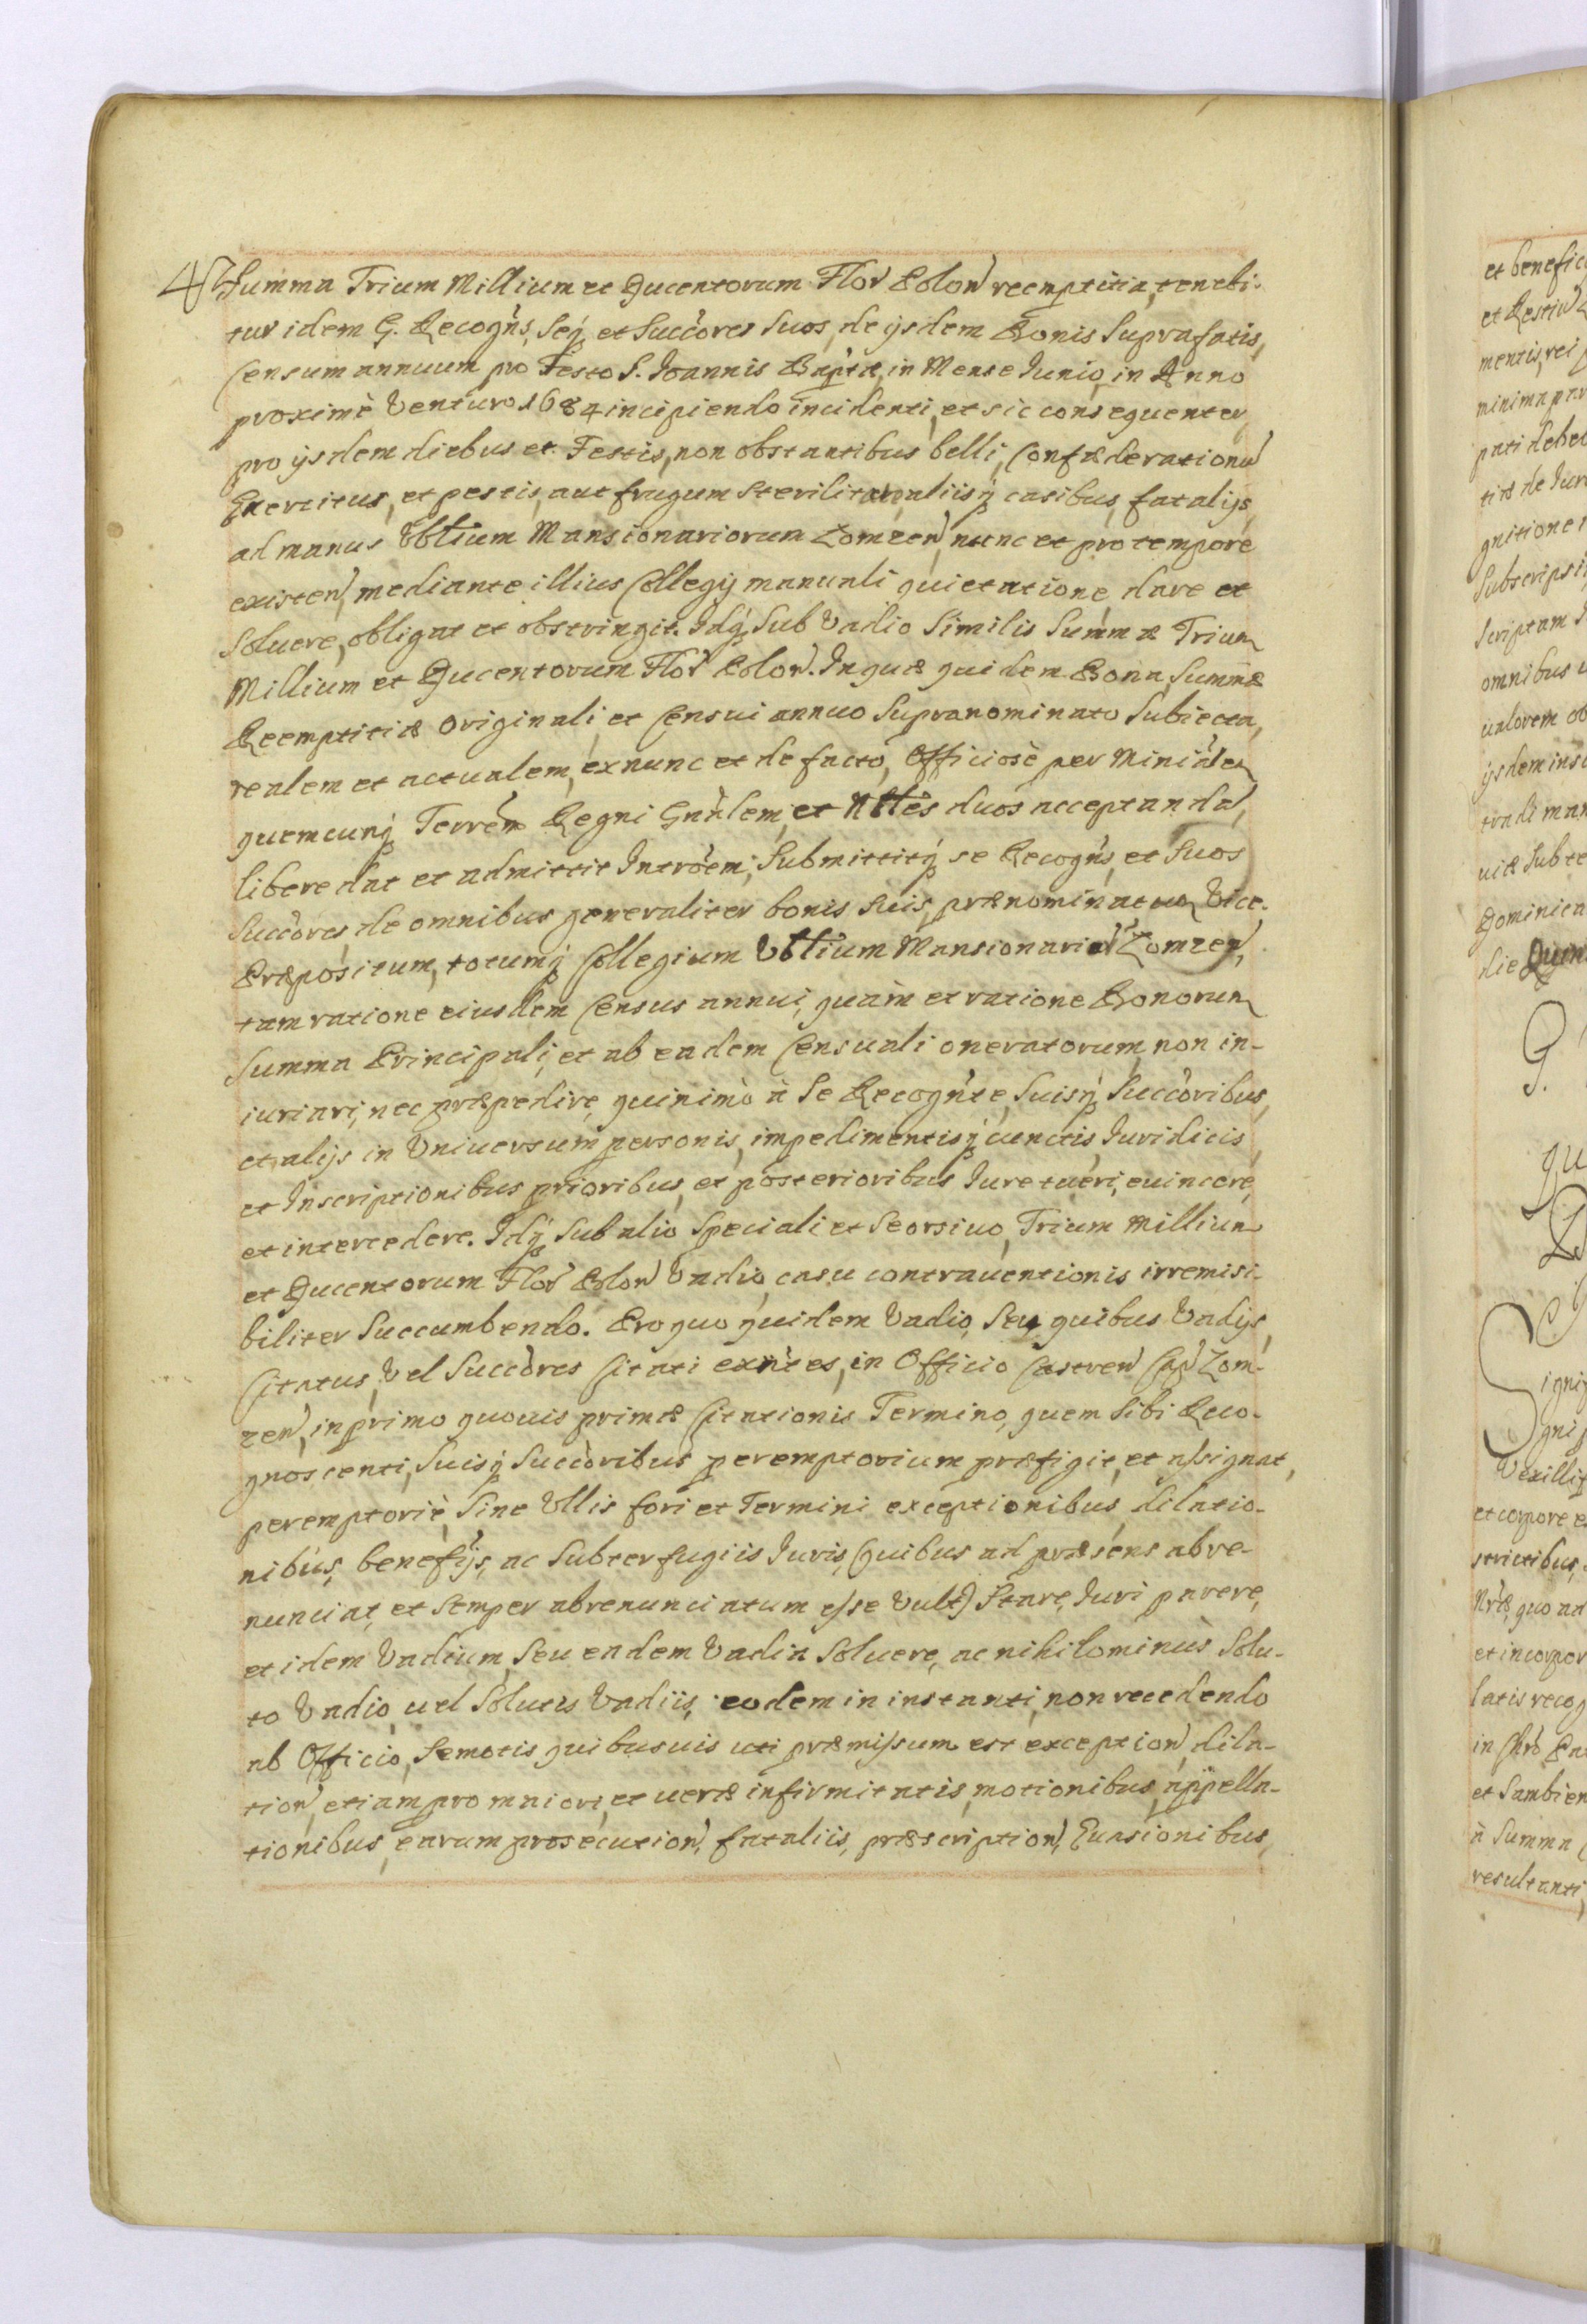 Summa Trium Millium et Ducentorum Flor Polon reemptitia, tenebi-
tur idem G. Recogns, Seq et Succores Suos, de ijsdem Bonis Suprafatis,
Censum annuum pro Festo S. Ioannis Baptæ, in Mense Iunio, in Anno
proximè Venturo 1684 incipiendo incidenti, et sic consequenter
pro ijsdem diebus et Festis, non obstantibus belli, Confæderation
Exercitus, et pestis, aut frugum sterilitate, aliisq casibus fatalijs,
ad manus Vbłium Mansionariorum Zomzen, nunc et pro tempore
existen, mediante illius Collegij manuali quietatione, dare et
Soluere, obligat et obstringit. Idq Sub Vadio Similis Summæ Trium
Millium et Ducentorum Flor Polon. In quæ quidem Bona, Summæ
Reemptitiæ Originali, et Censui annuo Supranominato Subiecta,
realem et actualem, ex nunc et de facto, Officiosè per Minialem
quemcunq Terrem Regni Gnalem, et Nłles duos acceptanda,
libere dat et admittit Introem; Submittitq se Recogns, et Suos
Succores, de omnibus generaliter bonis suis, prænominatum Vice-
Præpositum, totumq Collegium Vbłium Mansionarior Zomzen,
tam ratione eiusdem Census annui, quam et ratione Bonorum
Summa Principali, et ab eadem Censuali oneratorum, non in-
iuriari, nec præpedire, quinimò à Se Recognte, Suisq Succoribus,
et alijs in Vniuersum personis, impedimentisq cunctis, Iuridicis
et Inscriptionibus prioribus, et posterioribus Iure tueri, euincere,
et intercedere. Idq Sub alio Speciali et Seorsiuo, Trium Millium
et Ducentorum Flor Polon Vadio, casu contrauentionis irremisi-
biliter Succumbendo. Pro quo quidem Vadio, Seu quibus Vadijs,
Citatus, Vel Succores Citati exntes, in Officio Castren Cap Zom-
zen, in primo quouis primæ Citationis Termino, quem Sibi Reco-
gnoscenti, Suisq Succoribus peremptorium præfigit, et assignat,
peremptoriè, Sine Vllis fori et Termini exceptionibus, dilatio-
nibus, benefijs, ac Subterfugiis Iuris, (quibus ad præsens abre-
nunciat, et Semper abrenunciatum esse Vult) Stare, Iuri parere,
et idem Vadium, Seu eadem Vadia Soluere, ac nihilominus Solu-
to Vadio, uel Solutis Vadiis, eodem in instanti, non recedendo
ab Officio, Semotis quibusuis uti præmissum est exception, dila-
tion, etiam pro maiori, et ueræ infirmitatis, motionibus, appella-
tionibus, earum prosecution, fataliis, præscription, Euasionibus,
et benefic
et Restiu
mentis, rei
minima par
pati debe
titæ de Iur
gnitione
Subscripsi
Scriptam
omnibus
ualorem ob
ijsdem ins
tradi man
uiæ Sub te
Dominica
die Quin
G.
qu
Signi
gni
Vexillif
et corpore e
strictibus,
Nræ, quo ad
et incorpor
latis recog
in Chro
et Sambien
à Summa
resultanti,